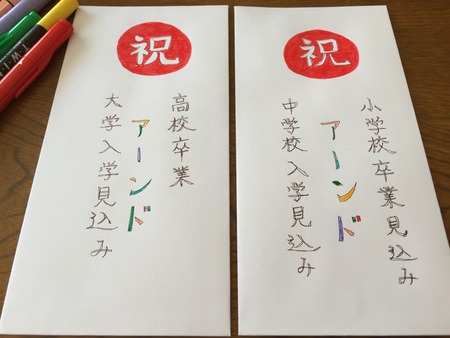 祝
高校卒業
アーンド
大学入学見込み
祝
小学校卒業見込み
アーンド
中学校入学見込み